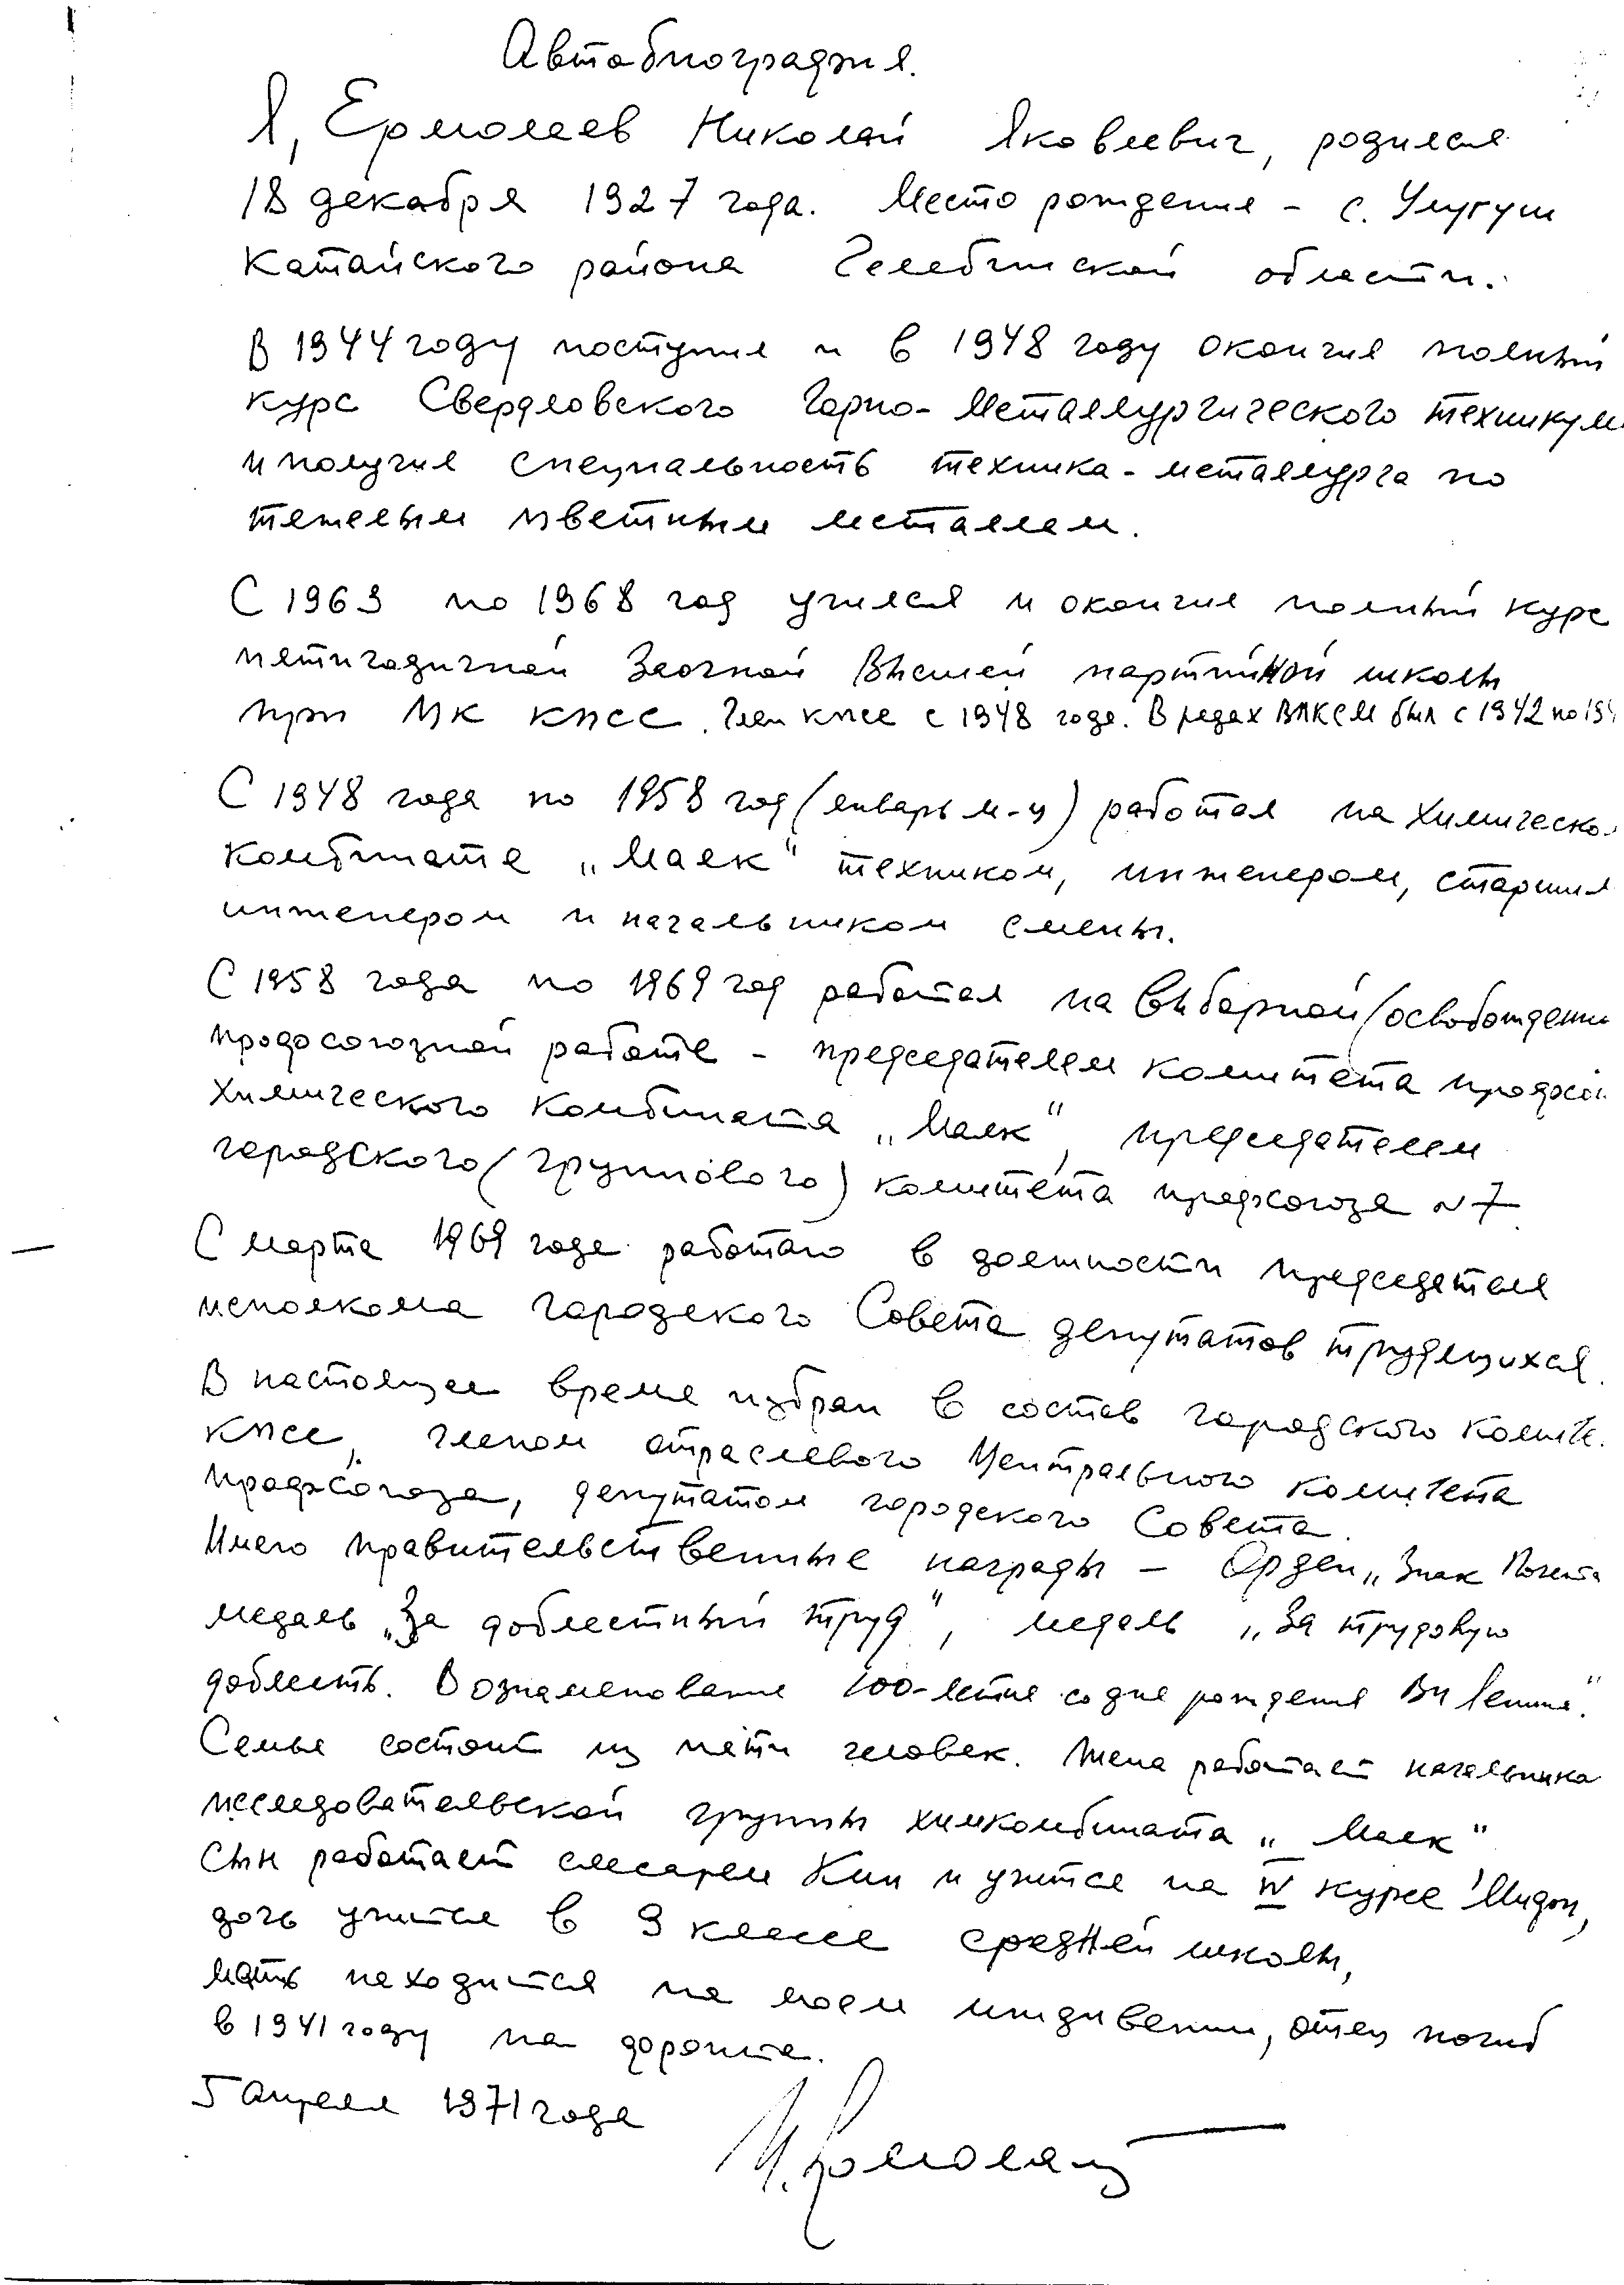 Автобиография.
Я, Ермолаев Николай Яковлевич, родился
18 декабря 1927 года. Место рождения – с.
Катайского района Челябинской области.
В 1944 году поступил и в 1948 году окончил полный
курс Свердловского Горно-Металлургического технику
и получил специальность техника-металлурга по
тяжелым цветным металлам.
С 1963 по 1968 год учился и окончил полный курс
пятигодичной Заочной Высшей партийной школы
при ЦК КПСС. Член КПСС с 1948 года. В рядах ВЛКСМ был с 1942 по 194
С 1948 года по 1958 год (январь м-ц) работал на химическо
комбинате „Маяк“ техником, инженером, старшим
инженером и начальником смены.
С 1958 года по 1969 год работал на выборной (освобожденн
профсоюзной работе – председателем комитета профсою
химического комбината „Маяк“, председателем
городского (группового) комитета профсоюза N 7.
С марта 1969 года работаю в должности председателя
исполкома городского Совета депутатов трудящихся.
В настоящее время избран в состав городского комите
КПСС, членом отраслевого Центрального комитета
профсоюза, депутатом городского Совета.
Имею правительственные награды – Орден „Знак Почета
медаль „За доблестный труд“, медаль „За трудовую
доблесть. В ознаменование 100-летия со дня рождения ВИ Ленина“.
Семья состоит из пяти человек. Жена работает начальника
исследовательской группы химкомбината „Маяк“
Сын работает слесарем и учится на IV курсе
дочь учится в 9 классе средней школы,
мать находится на моем иждивении, отец погиб
в 1941 году на фронте.
5 апреля 1971 года